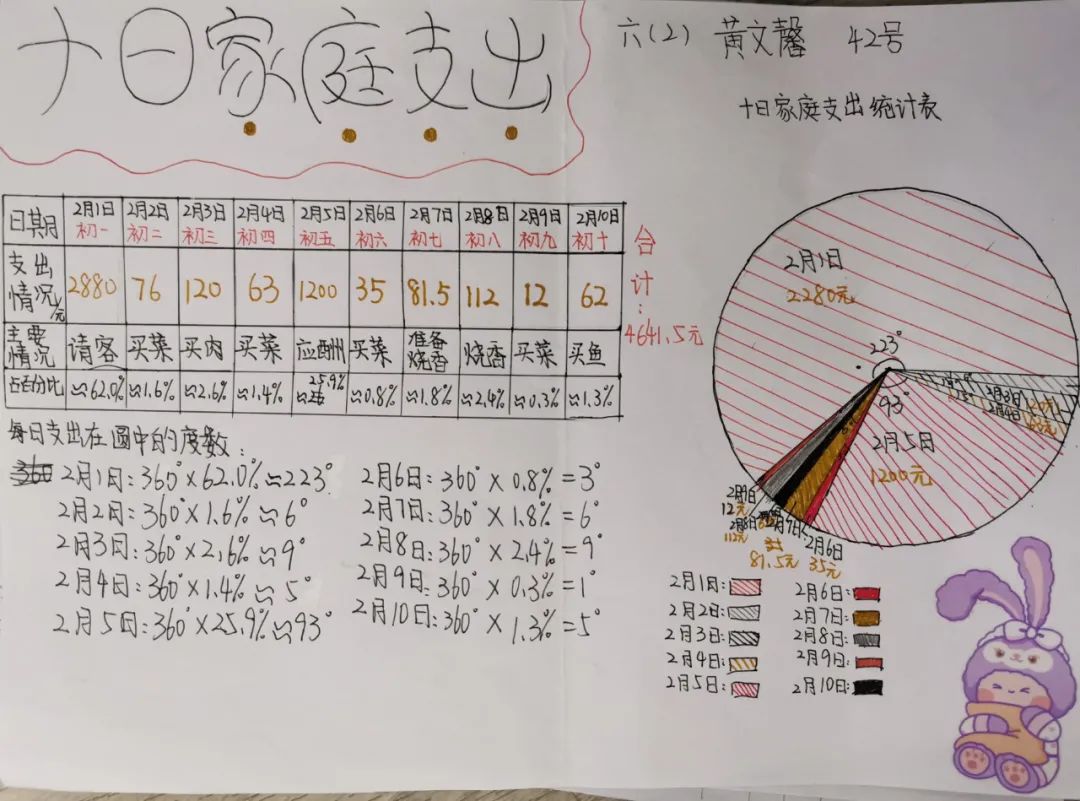 十日家庭支出
六(2) 黄文馨 42号
十日家庭支出统计表
日期 2月1日 2月2日 2月3日 2月4日 2月5日 2月6日 2月7日 2月8日 2月9日 2月10日
初一 初二 初三 初四 初五 初六 初七 初八 初九 初十
支出情况/元 2880 76 120 63 1200 35 81.5 112 12 62
主要情况 请客 买菜 买肉 买菜 应酬 买菜 准备烧香 烧香 买菜 买鱼
占百分比 ≈62.0% ≈1.6% ≈2.6% ≈1.4% ≈25.9% ≈0.8% ≈1.8% ≈2.4% ≈0.3% ≈1.3%
合计:4641.5元
每日支出在圆中的度数:
2月1日:360°×62.0%≈223°
2月2日:360°×1.6%≈6°
2月3日:360°×2.6%≈9°
2月4日:360°×1.4%≈5°
2月5日:360°×25.9%≈93°
2月6日:360°×0.8%=3°
2月7日:360°×1.8%=6°
2月8日:360°×2.4%=9°
2月9日:360°×0.3%=1°
2月10日:360°×1.3%=5°
2月1日
2280元
223°
93°
2月3日
2月4日
2月5日
1200元
2月9日
12元
2月8日
112元
2月7日
81.5元
2月6日
35元
2月1日:
2月2日:
2月3日:
2月4日:
2月5日:
2月6日:
2月7日:
2月8日:
2月9日:
2月10日: